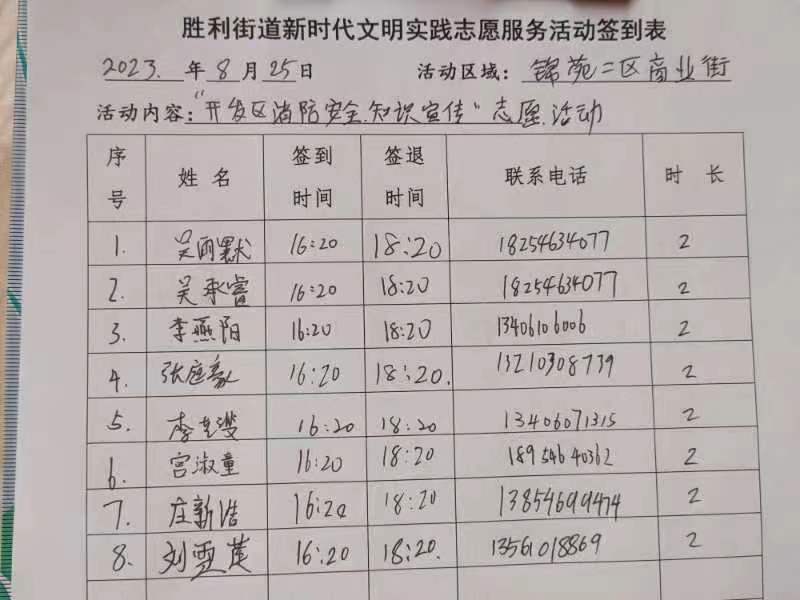 胜利街道新时代文明实践志愿服务活动签到表
2023. 年 8 月 25 日 活动区域: 锦苑二区商业街
活动内容:"开发区消防安全知识宣传"志愿活动
序号 姓名 签到时间 签退时间 联系电话 时长
1. 吴雨默 16:20 18:20 18254634077 2
2. 吴承睿 16:20 18:20 18254634077 2
3. 李燕阳 16:20 18:20 13406106006 2
4. 张庭豪 16:20 18:20. 13210308739 2
5. 李 16:20 18:20 13406071315 2
6. 宫淑童 16:20 18:20 18954640362 2
7. 庄新浩 16:20 18:20 13854699474 2
8. 刘雪莲 16:20 18:20. 13561018869 2